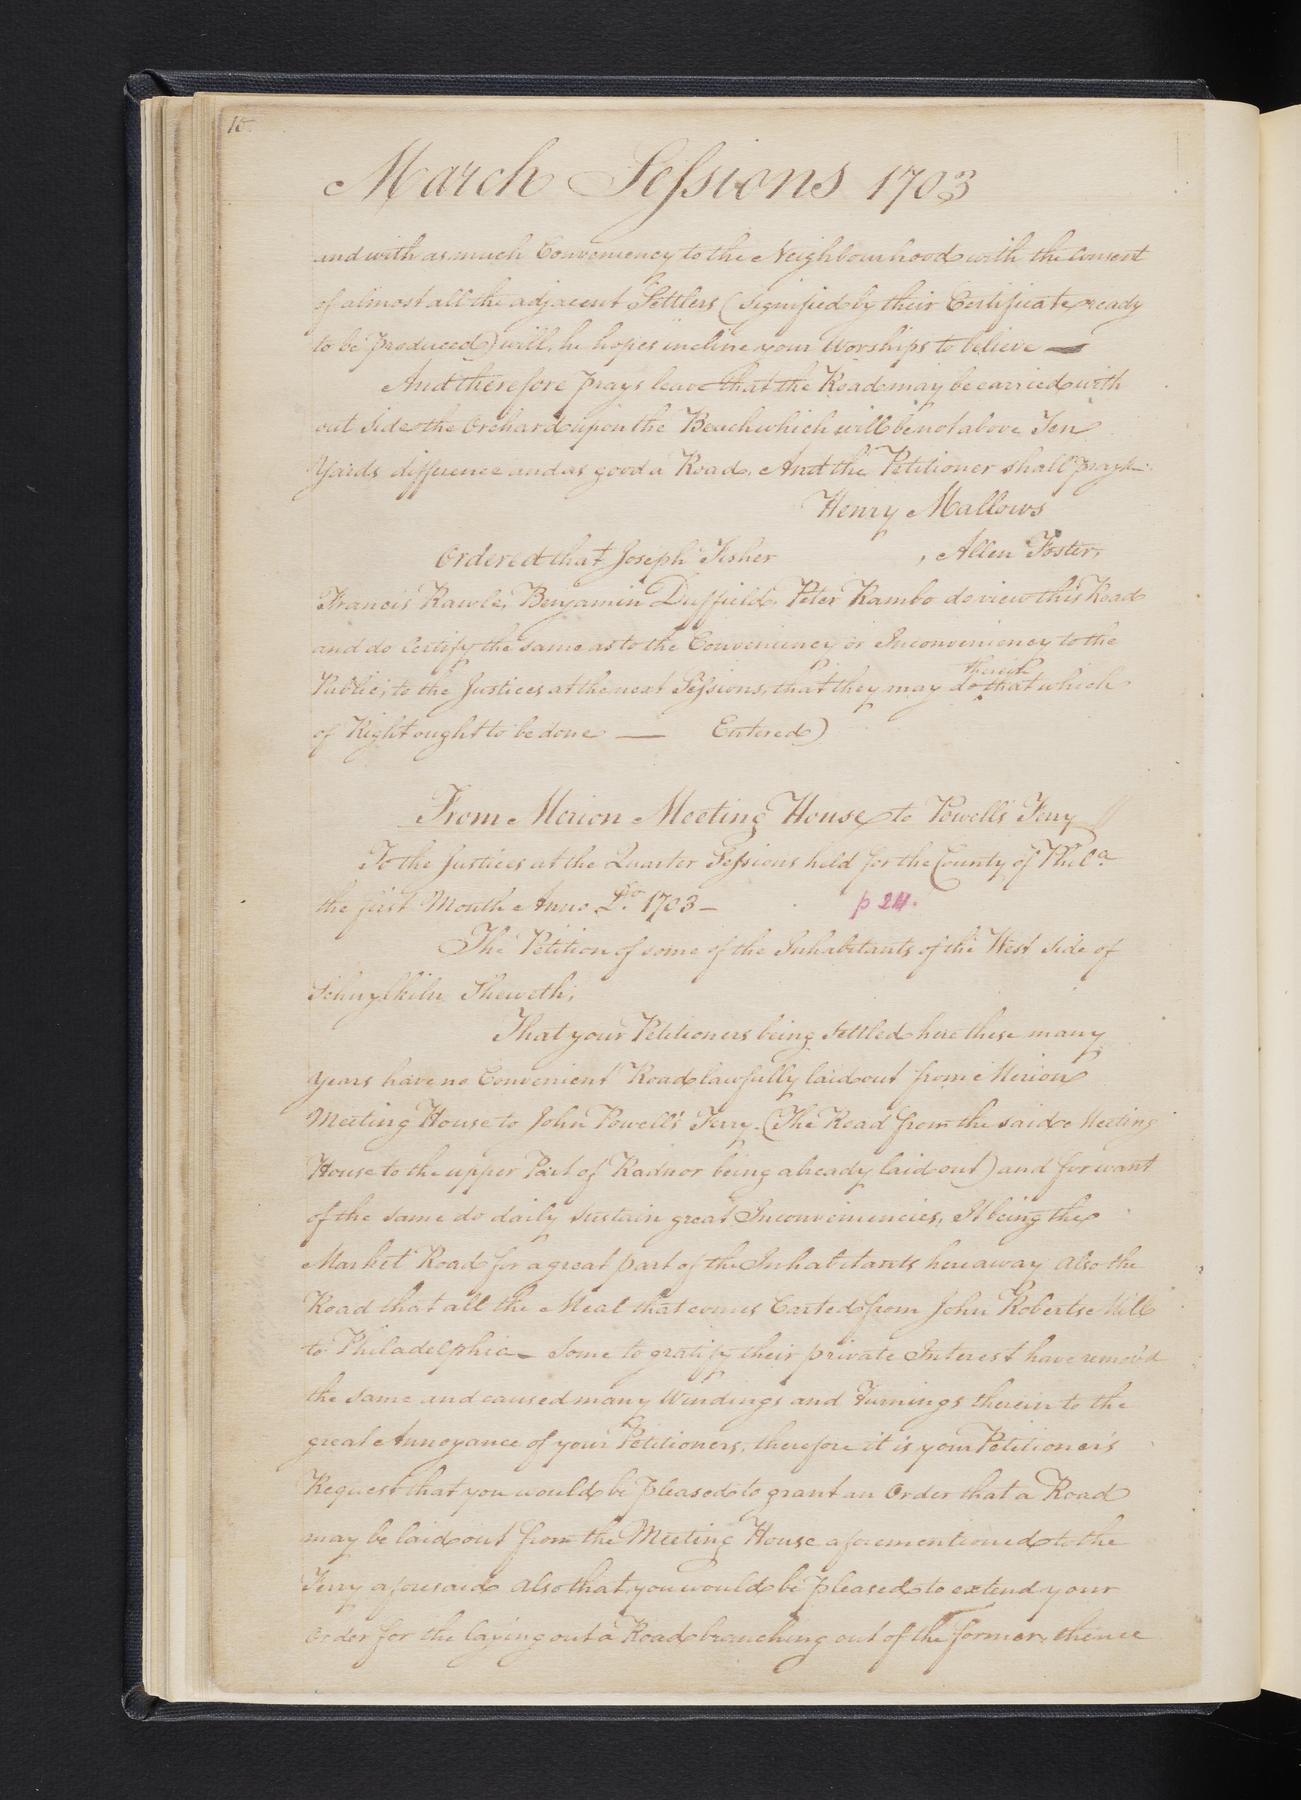 15.
March Sessions 1703
and with as much Conveniency to the Neighbourhood with the Consent
of almost all the adjacent Settlers (signified by their Certificate ready
to be produced) will, he hopes incline your Worships to believe —
And therefore prays leave that the Road may be carried with
out side the Orchard upon the Beach which will be not above Ten
Yards difference and as good a Road. And the Petitioner shall pray &c.
Henry Mallows
Ordered that Joseph Fisher , Allen Foster,
Francis Rawle, Benjamin Duffield, Peter Rambo do view this Road
and do Certify the same as to the Conveniency or Inconveniency to the
Public, to the Justices at the next Sessions, that they may do that which
therein
of Right ought to be done — Entered)
From Merion Meeting House to Powell's Ferry //
To the Justices at the Quarter Sessions held for the County of Phila
the first Month Anno Do. 1703 — p 24.
The Petition of some of the Inhabitants of the West side of
Schuylkiln Sheweth,
That your Petitioners being settled here these many
Years have no Convenient Road lawfully laid out from Merion
Meeting House to John Powell's Ferry. (The Road from the said Meeting
House to the upper Part of Radnor being already laid out) and for want
of the same do daily sustain great Inconveniencies, It being the
Market Road for a great part of the Inhabitants hereaway also the
Road that all the Meal that comes Carted from John Roberts Mill
to Philadelphia — Some to gratify their private Interest have remov'd
the same and caused many Windings and Turnings therein to the
great Annoyance of your Petitioners, therefore it is your Petitioner's
Request that you would be pleased to grant an Order that a Road
may be laid out from the Meeting House aforementioned to the
Ferry aforesaid also that you would be pleased to extend your
Order for the laying out a Road branching out of the former, thence